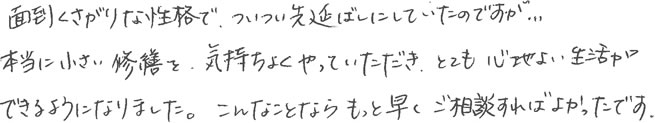 面倒くさがりな性格で、ついつい先延ばしにしていたのですが...
本当に小さい修繕を、気持ちよくやっていただき、とても心地よい生活が
できるようになりました。こんなことならもっと早くご相談すればよかったです。